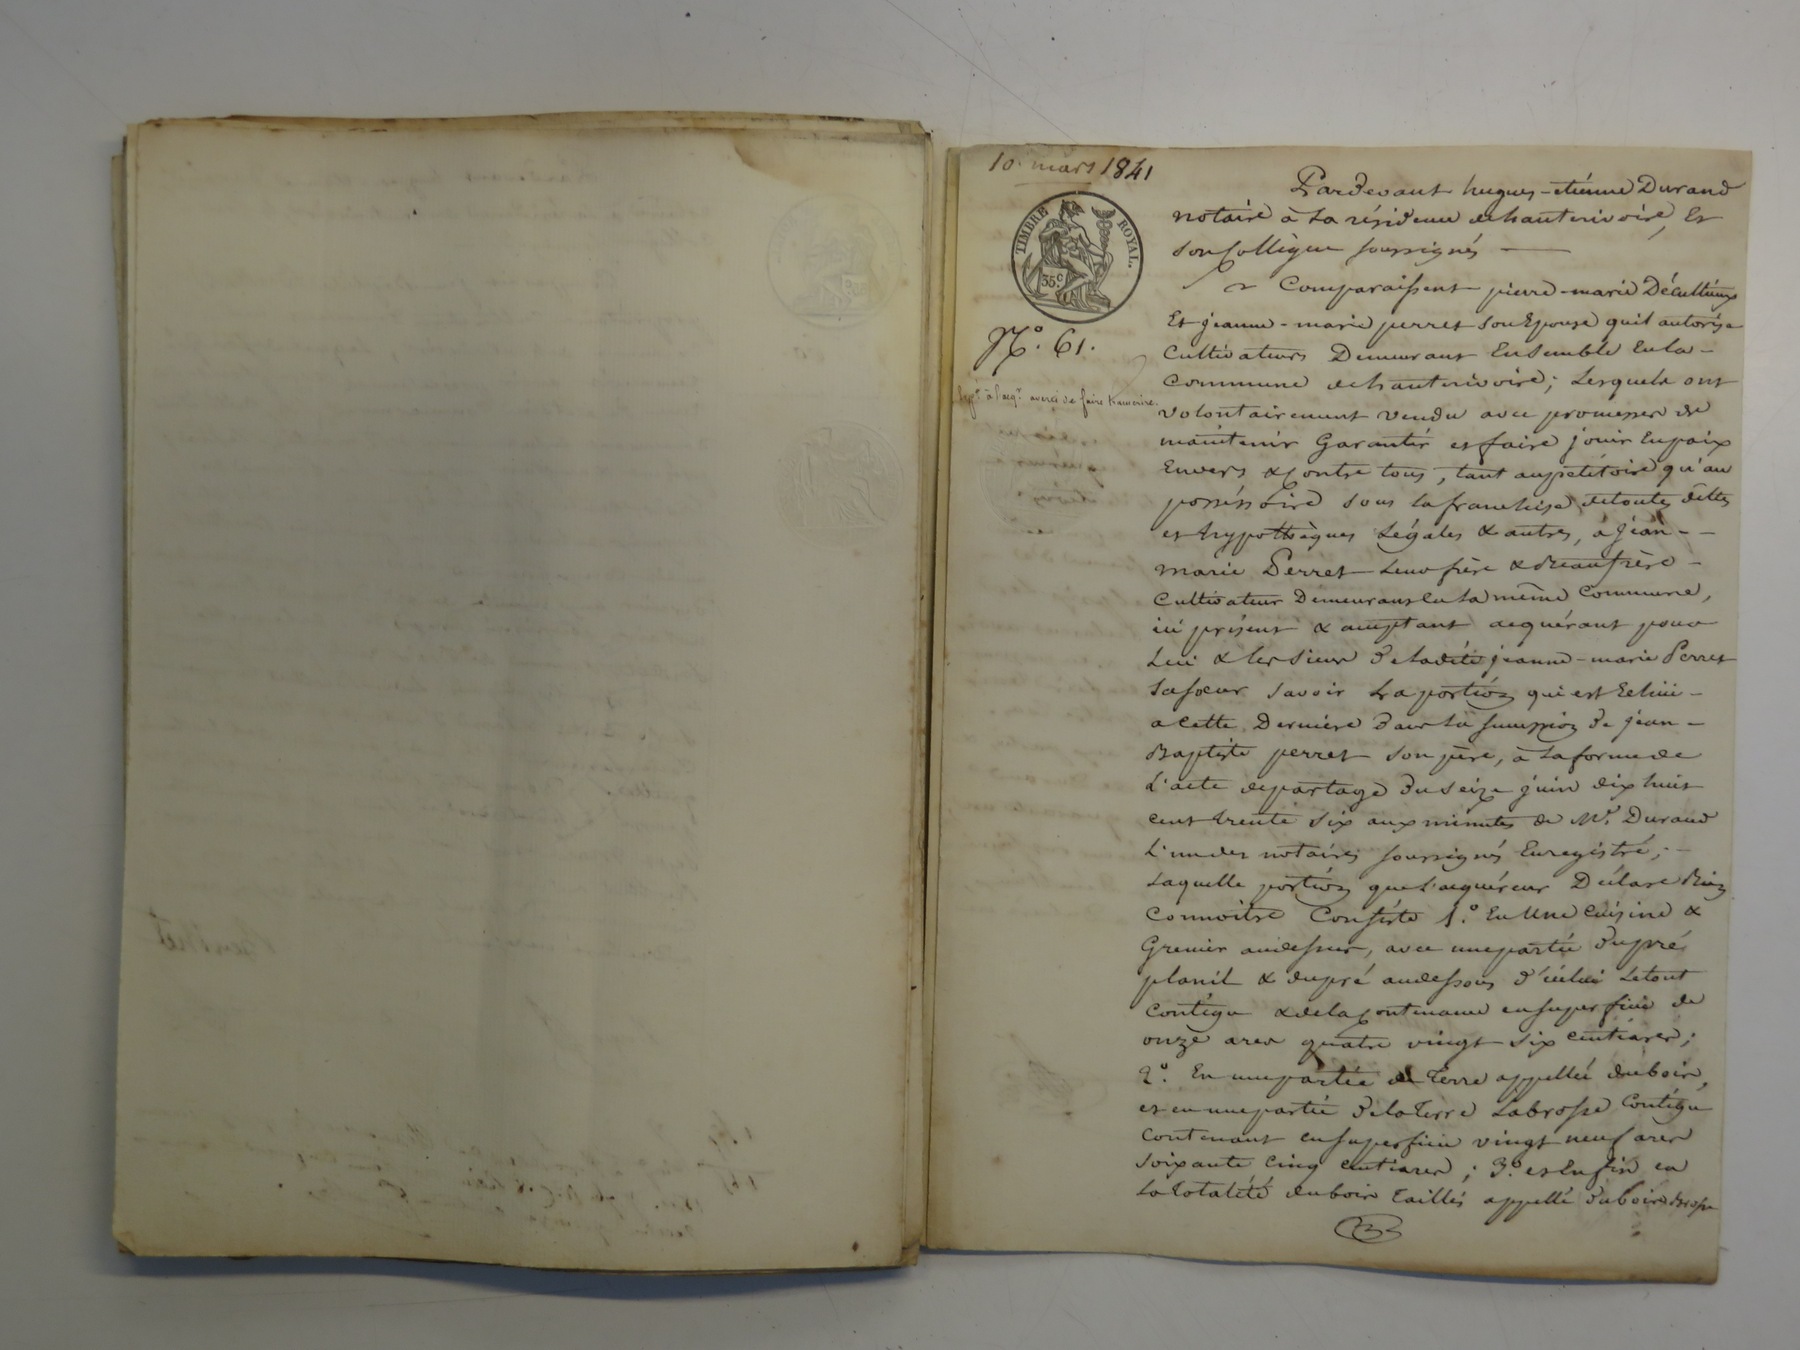 10. mars 1841
TIMBRE ROYAL.
35c
N.º 61.
à l'acqr. averti de faire transcrire.
Pardevant hugues-etiénne Durand
notaire à la résidence de hauterivoire, Et
son Collègue soussignés
Comparaissent pierre-marie Décultieux
Et jeanne-marie perret son Epouse qu'il autorise
Cultivateurs Demeurant Ensemble En la
Commune de hauterivoire; Lesquels ont
volontairement vendu avec promesse de
maintenir Garantir et faire jouir En paix
Envers & Contre tous, tant au pétitoire qu'au
posséssoire sous la franchise de toutes dettes
et hypothèques Légales & autres, à Jean-
marie Perret Leur frère & Beaufrère
Cultivateur Demeurant En la même Commune,
ici présent & acceptant acquérant pour
Lui & les sieur de ladite jeanne-marie Perret
sa soeur savoir La portion qui est Echue
a Cette Dernière dans la succession de jean-
Baptiste perret son père, à la forme de
L'acte de partage du seize juin dix huit
cent trente six aux minutes de Me. Durand
L'un des notaires soussignés Enregistré;
Laquelle portion que l'acquéreur Déclare Bien
Connoitre Consiste 1.º En Une Cuisine &
Grenier au dessus, avec une partie du pré
planil & du pré au dessous d'icelui Le tout
Contigu & de la Contenance en superficie de
onze ares quatre vingt six centiares;
2.º En une partie de Terre appellée du bois,
et en une partie de la Terre Labrosse Contigu
Contenant en superficie vingt neuf ares
soixante cinq centiares; 3.º et Enfin en
La Totalité du bois Taillis appellé du bois Brosse